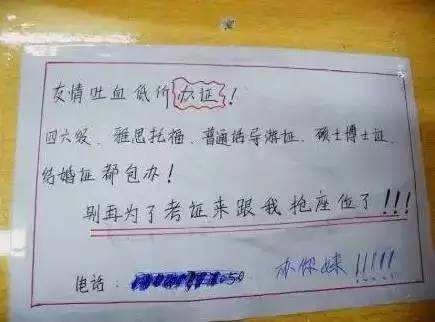 友情吐血低价办证！
四六级、雅思托福、普通话导游证、硕士博士证、
结婚证都包办！
别再为了考证来跟我抢座位了！！！
电话：050
办你妹！！！！！